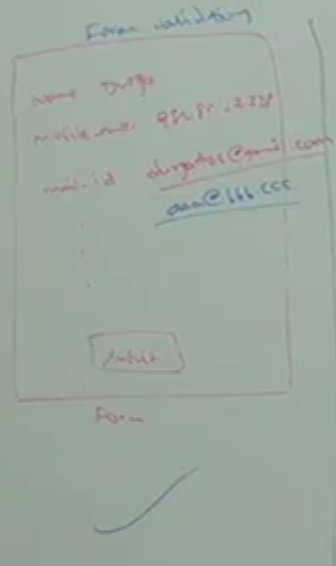 Form validation
Name Durga
Mobile num.
mail-id durgatos@gmail.com
aaa@bbb.ccc
Submit
Form